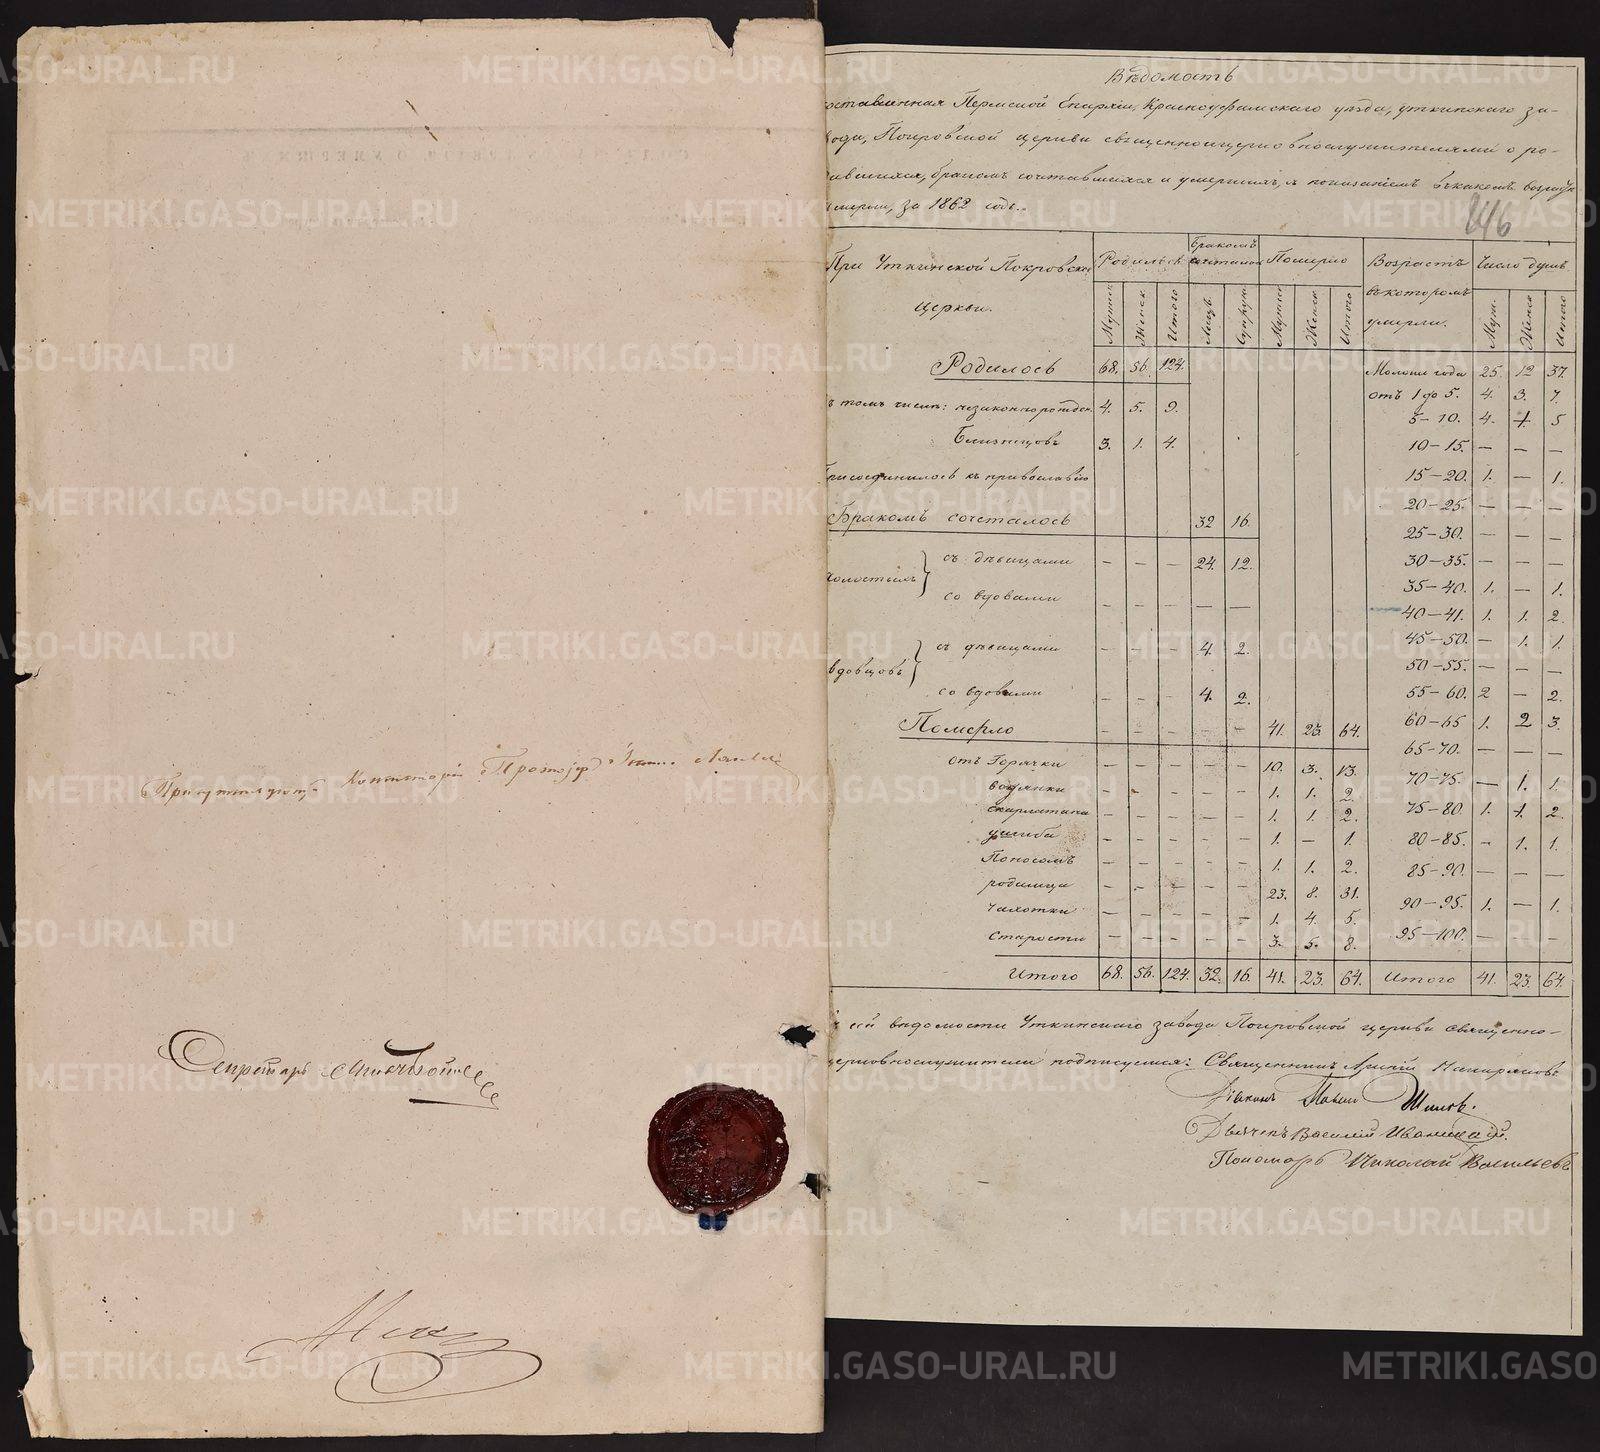 Присутствующій Консисторіи Протоіерей Іоаннъ
Секретарь
Вѣдомость
составленная Пермской Епархіи, Красноуфимскаго уѣзда, уткинскаго за-
вода, Покровской церкви священноцерковнослужителями о ро-
дившихся, бракомъ сочтавшихся и умершихъ, съ показаніемъ въ какомъ возрастѣ
умерли, за 1862 годъ.
246
При Уткинской Покровской церкви. | Родилось | Бракомъ сочталось | Померло | Возрастъ въ которомъ умерли. | Число душъ
Мужск. Женск. Итого | Лицъ. Супруж. | Мужск Женск Итого | Муж. Женск Итого
Родилось 68. 56. 124.
въ томъ числѣ: незаконнорожден. 4. 5. 9.
Близнецовъ 3. 1. 4.
Присоединилось къ православію
Бракомъ сочталось 32 16.
холостыхъ } съ дѣвицами — — — 24. 12.
со вдовами — — — — —
вдовцовъ } съ дѣвицами — — — 4. 2.
со вдовами — — — 4. 2.
Померло — — — — — 41. 23. 64.
отъ Горячки — — — — — 10. 3. 13.
водянки — — — — — 1. 1. 2.
скарлатина — — — — — 1. 1. 2.
ушиба — — — — — 1. — 1.
Поносомъ — — — — — 1. 1. 2.
родимца — — — — — 23. 8. 31.
чахотки — — — — — 1. 4. 5.
старости — — — — — 3. 5. 8.
Итого 68. 56. 124. 32. 16. 41. 23. 64.
Моложе года 25. 12 37.
отъ 1 до 5. 4. 3. 7.
5–10. 4. 1. 5
10–15. — — —
15–20. 1. — 1.
20–25. — — —
25–30. — — —
30–35. — — —
35–40. 1. — 1.
40–41. 1. 1. 2.
45–50. — 1. 1.
50–55. — — —
55–60. 2 — 2.
60–65 1. 2 3.
65–70. — — —
70–75. — 1. 1.
75–80. 1. 1. 2.
80–85. — 1. 1.
85–90. — — —
90–95. 1. — 1.
95–100. — — —
Итого 41. 23. 64.
Къ сей вѣдомости Уткинскаго завода Покровской церкви священно-
церковнослужители подписуемся: Священникъ
Діаконъ Павелъ Шиловъ.
Дьячекъ Василій Иваницкій.
Пономарь Николай Васильевъ
METRIKI.GASO-URAL.RU